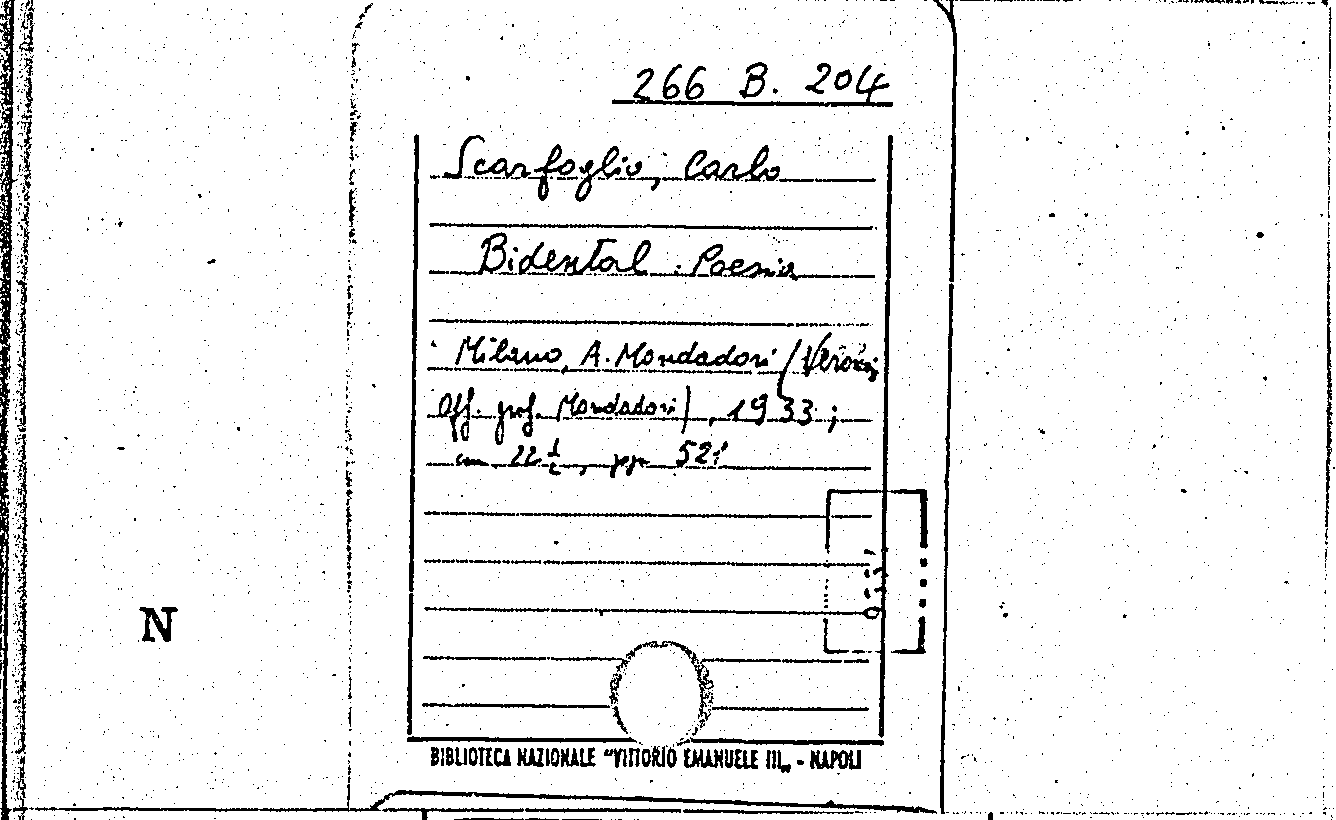 266 B. 204
Scarfoglio, Carlo
Bidental. Poesia
Milano, A. Mondadori (Verona,
Off. graf. Mondadori), 1933;
cm 22½, pp 521
N
BIBLIOTECA NAZIONALE "VITTORIO EMANUELE III„ - NAPOLI